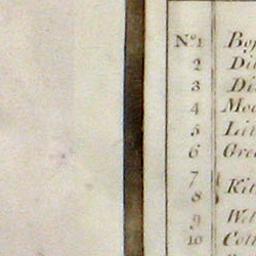 No. 1 Bo
2 Di
3 Di
4 Mo
5 Lit
6 Gre
7
8 Kit
9 Wel
10 Cott